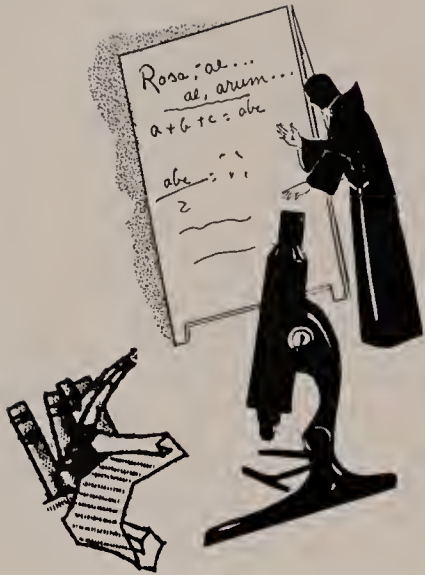 Rosa; ae...
ae, arum...
a + b + c = abc
abc
2